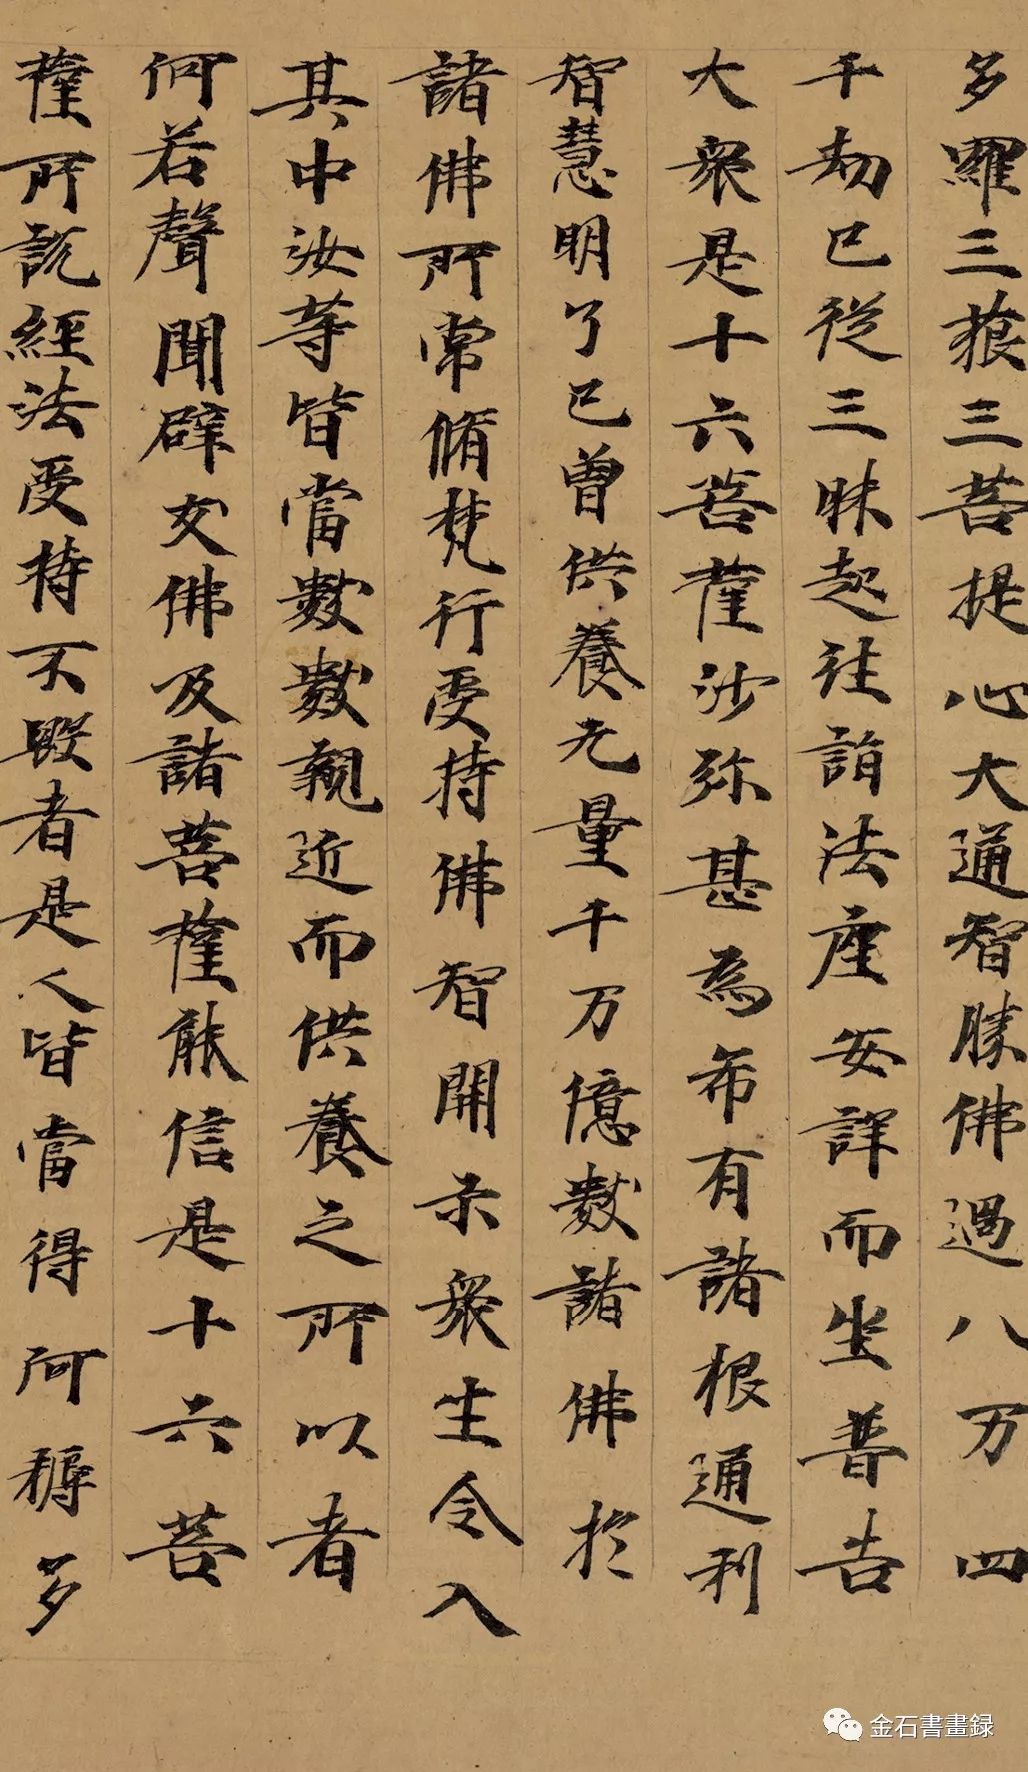 多羅三藐三菩提心大通智勝佛過八万四
千劫已從三昧起往詣法座安詳而坐普告
大衆是十六菩薩沙弥甚為希有諸根通利
智慧明了已曾供養无量千万億數諸佛於
諸佛所常脩梵行受持佛智開示衆生令入
其中汝等皆當數數親近而供養之所以者
何若聲聞辟支佛及諸菩薩能信是十六菩
薩所説經法受持不毀者是人皆當得阿耨多
金石書畫録